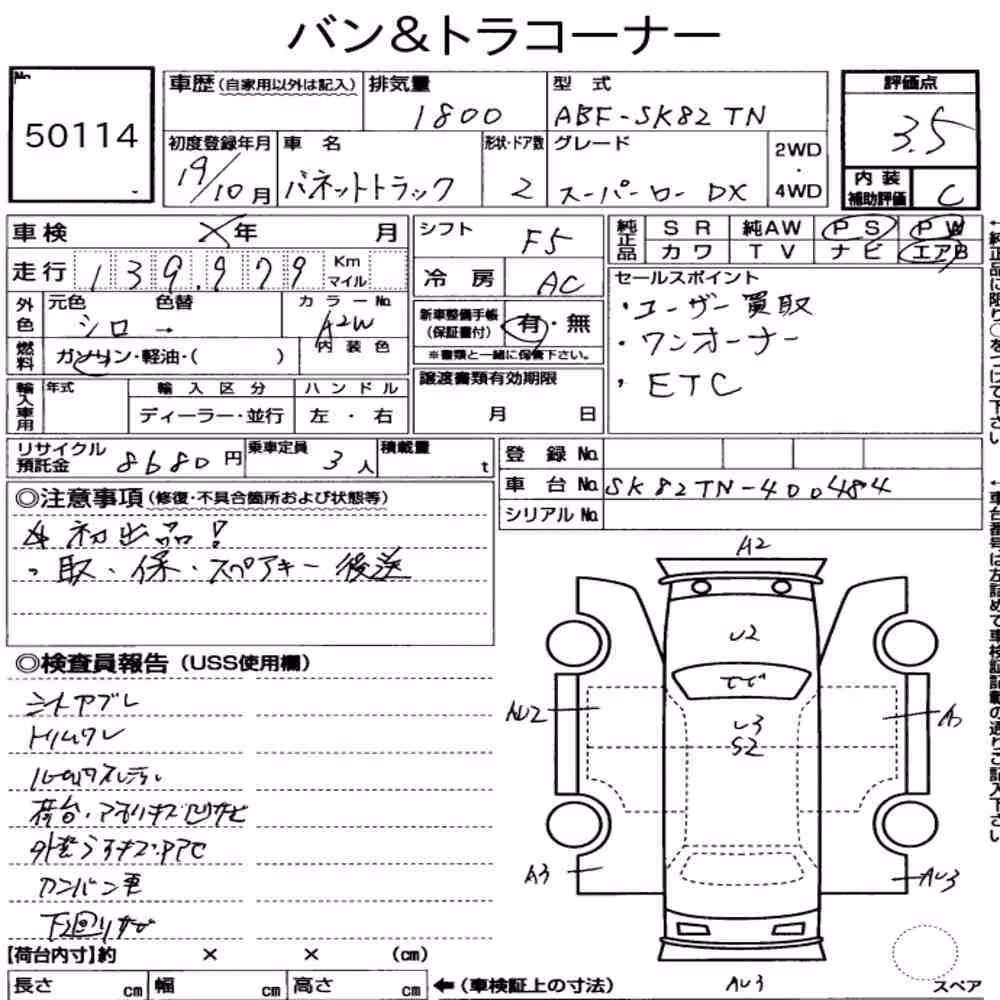 バン&トラコーナー
No. 50114
車歴 (自家用以外は記入) 排気量 1800 型式 ABF-SK82TN 評価点 3.5
初度登録年月 19/10月 車名 バネットトラック 形状・ドア数 2 グレード スーパーロー DX 2WD・4WD 内装補助評価 C
車検 X年 月 シフト F5 純正品 SR 純AW PS PW
カワ TV ナビ エアB
走行 139,979 Km マイル 冷房 AC
外色 元色 シロ → 色替 カラーNo. A2W 内装色
新車整備手帳 (保証書付) 有・無
※書類と一緒に保管下さい。
燃料 ガソリン・軽油・( )
セールスポイント
・ユーザー買取
・ワンオーナー
・ETC
輸入車用 年式 輸入区分 ハンドル
ディーラー・並行 左・右
譲渡書類有効期限
月 日
リサイクル預託金 8680円 乗車定員 3人 積載量 t
登録No.
車台No. SK82TN-400484
シリアルNo.
◎注意事項 (修復・不具合箇所および状態等)
初出品!
・取・保・スペアキー後送
◎検査員報告 (USS使用欄)
シートヤブレ
トリムワレ
荷台・アオリキズ凹サビ
カンバン車
下回りサビ
【荷台内寸】約 × × (cm)
長さ cm 幅 cm 高さ cm ←(車検証上の寸法)
A2
U2
U3
S2
AU2
A3
AU3
AU3
スペア
←純正品に限り○をつけて下さい
←車台番号は左詰めで車検証記載の通りご記入下さい。